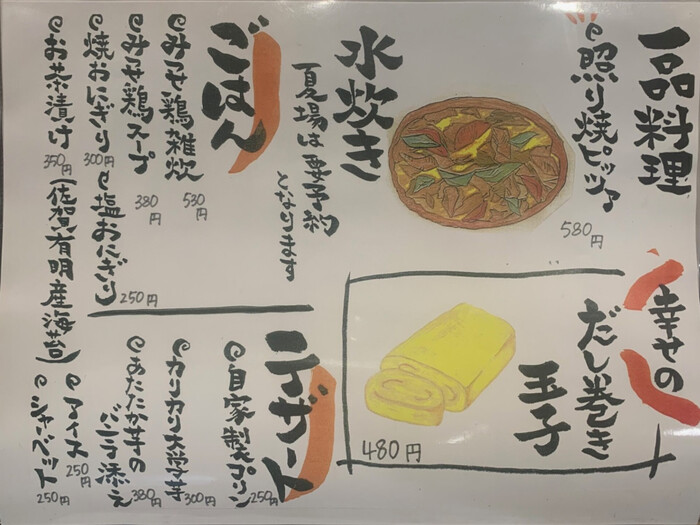 一品料理
照り焼ピッツァ
580円
幸せの
だし巻き
玉子
480円
水炊き
夏場は要予約
となります
ごはん
みつせ鶏雑炊
530円
みつせ鶏スープ
380円
焼おにぎり
300円
塩おにぎり
250円
お茶漬け
350円
(佐賀有明産海苔)
デザート
自家製プリン
250円
カリカリ大学芋
300円
あたたか芋の
バニラ添え
380円
アイス
250円
シャーベット
250円